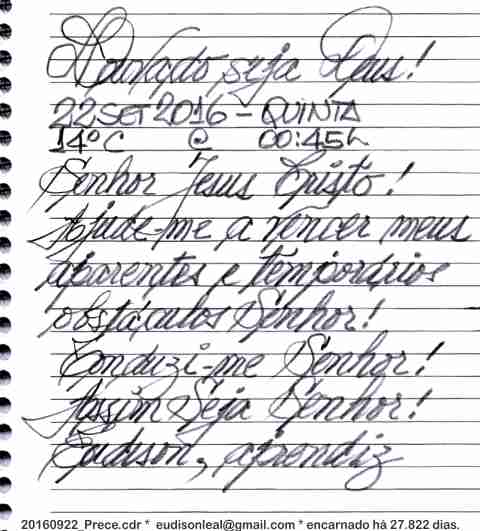 Louvado seja Deus!
22SET2016 - QUINTA
14°C @ 00:45h
Senhor Jesus Cristo!
Ajude-me a vencer meus
aparentes e temporários
obstáculos Senhor!
Conduzi-me Senhor!
Assim Seja Senhor!
Eudison, aprendiz
20160922_Prece.cdr * eudisonleal@gmail.com * encarnado há 27.822 dias.